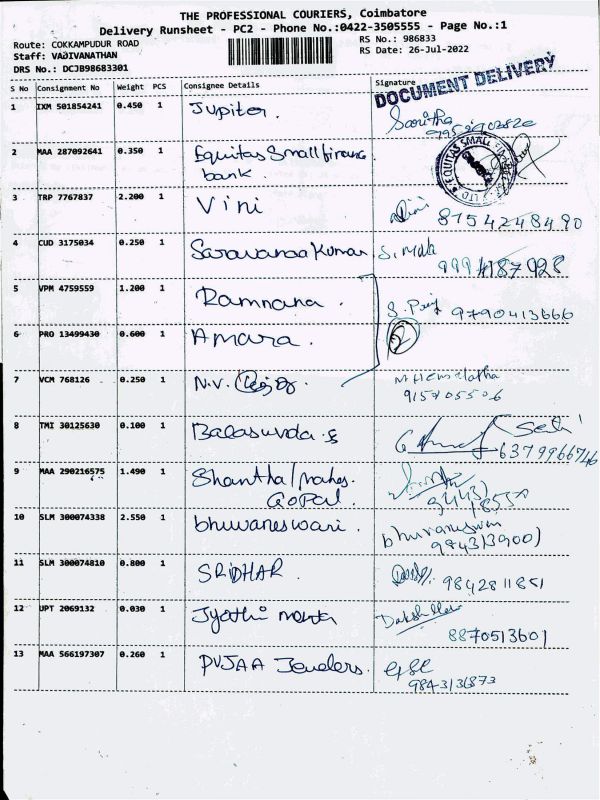 THE PROFESSIONAL COURIERS, Coimbatore
Delivery Runsheet - PC2 - Phone No.:0422-3505555 - Page No.:1
Route: COKKAMPUDUR ROAD
RS No.: 986833
Staff: VADIVANATHAN
RS Date: 26-Jul-2022
DRS No.: DCJB98683301
DOCUMENT DELIVERY
S No Consignment No Weight PCS Consignee Details Signature
1 IXM 501854241 0.450 1 Jupiter.
Saritha
2 MAA 287092641 0.350 1 Equitas Small finance
bank.
EQUITAS SMALL
3 TRP 7767837 2.200 1 Vini
8754248490
4 CUD 3175034 0.250 1 Saravanaa Kumar S. Mala
9994187928
5 VPM 4759559 1.200 1 Ramnana.
9790413666
6 PRO 13499430 0.600 1 Amara. 2
7 VCM 768126 0.250 1 N.V. MHemalatha
8 TMI 30125630 0.100 1
6379966746
9 MAA 290216575 1.490 1 Shantha/
GOPAL.
10 SLM 300074338 2.550 1 bhuvaneswari.
11 SLM 300074810 0.800 1 SRIDHAR.
9842811851
12 UPT 2069132 0.030 1 Jyothi
8870513601
13 MAA 566197307 0.260 1 PUJAA Jewelers.
9843131873